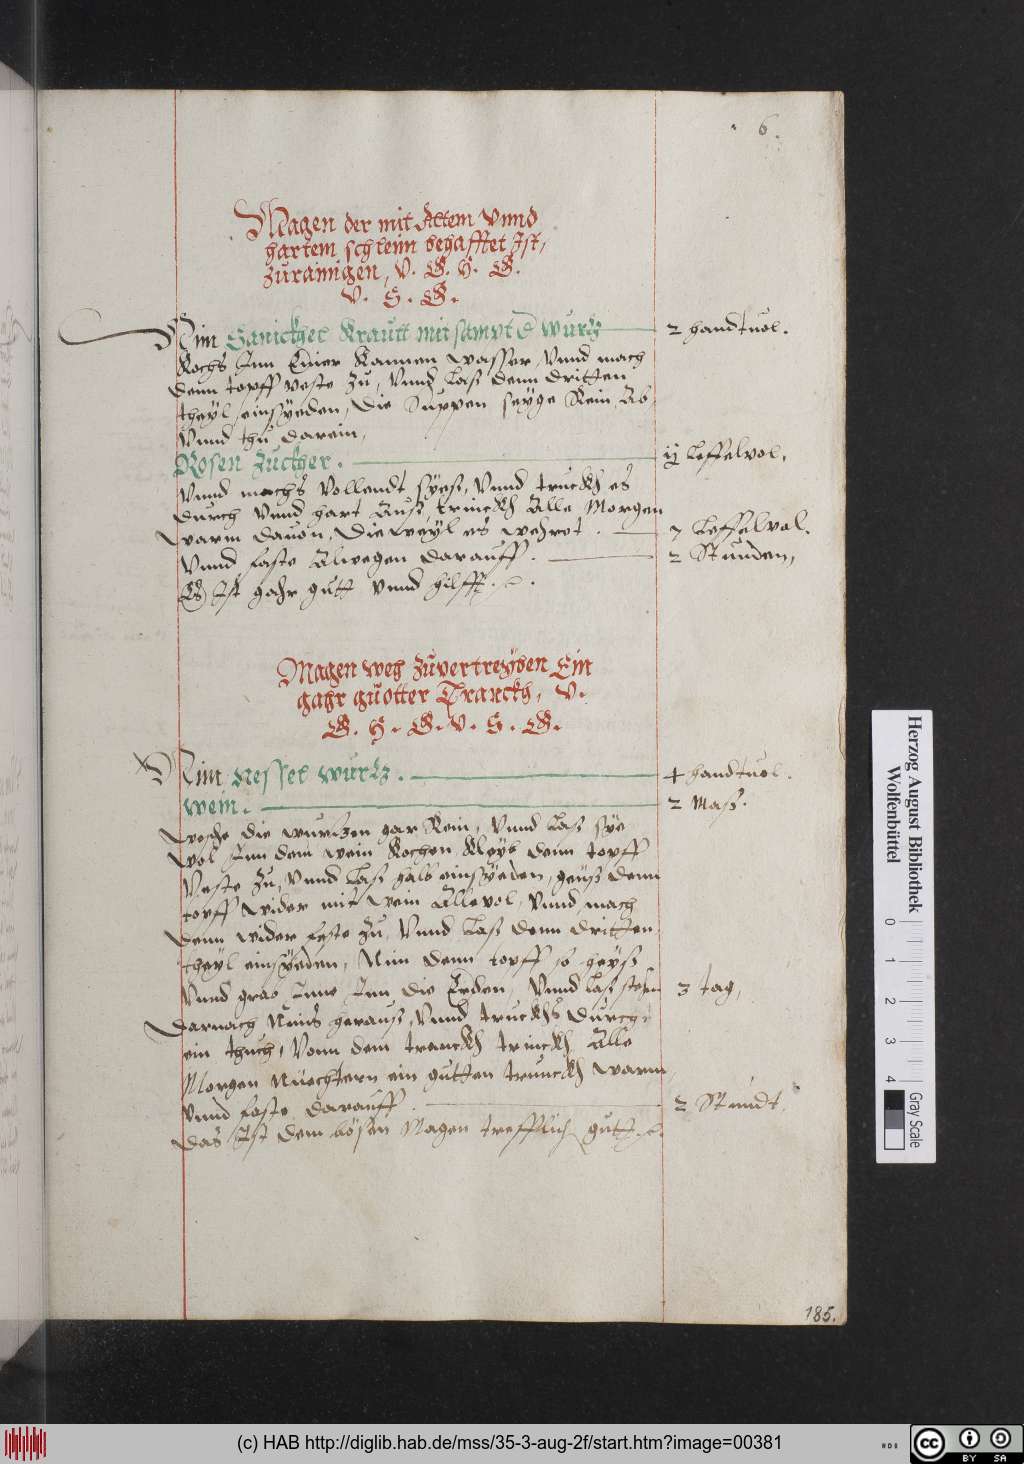 6.
Magen der mit Altem Vnnd
hartem schleim behafftet Ist,
zuraimigen, V. G. H. G.
V. S. G.
Nim Sanickhel Krautt mit sampt d wurtz 2 handtuol.
Kochs Inn Einer Kannen wasser, Vnnd mach
denn topff veste zu, Vnnd Laß denn dritten
theyl einsÿeden, die Suppen seyge Rein Ab
Vnnd thu darein,
Rosen Zuckher. ij Leffelvol.
Vnnd machs Vollendt süess, Vnnd truckh es
durch Vnnd hart Auß, trinckh Alle Morgen
warm dauon, Dieweÿl es wehret. 7 Leffelvol.
Vnnd faste Alwegen darauff. 2 Stunden,
Es Ist gahr gutt Vnnd hilfft.
Magen weh zuvertreyben Ein
gahr guotter Tranckh, V.
G. H. G. V. S. G.
Nim Nessel wurtz. 4 handtuol.
wein. 2 Mass.
wesche die wurtzen gar Rein, Vnnd Laß sÿe
wol Inn dem wein Kochen Kleyb denn topff
Veste zu, Vnnd Laß halb einsÿeden, geuß denn
topff wider mit wein Allevol, Vnnd mach
denn wider feste zu, Vnnd Laß denn dritten
theyl einsÿeden, Nim denn topff so heyß
Vnnd grab Inne Inn die Erden, Vnnd Laß stehn 3 tag,
Darnach Nims herauß, Vnnd truckhs durch
ein thuch, Vonn dem tranckh trinckh Alle
Morgen Nüechtern ein gutten trunckh warm,
Vnnd faste darauff. 2 Stundt.
Das Ist dem bösen Magen trefflich gutt.
185.
Herzog August Bibliothek
Wolfenbüttel
0 1 2 3 4
Gray Scale
(c) HAB http://diglib.hab.de/mss/35-3-aug-2f/start.htm?image=00381
cc BY SA